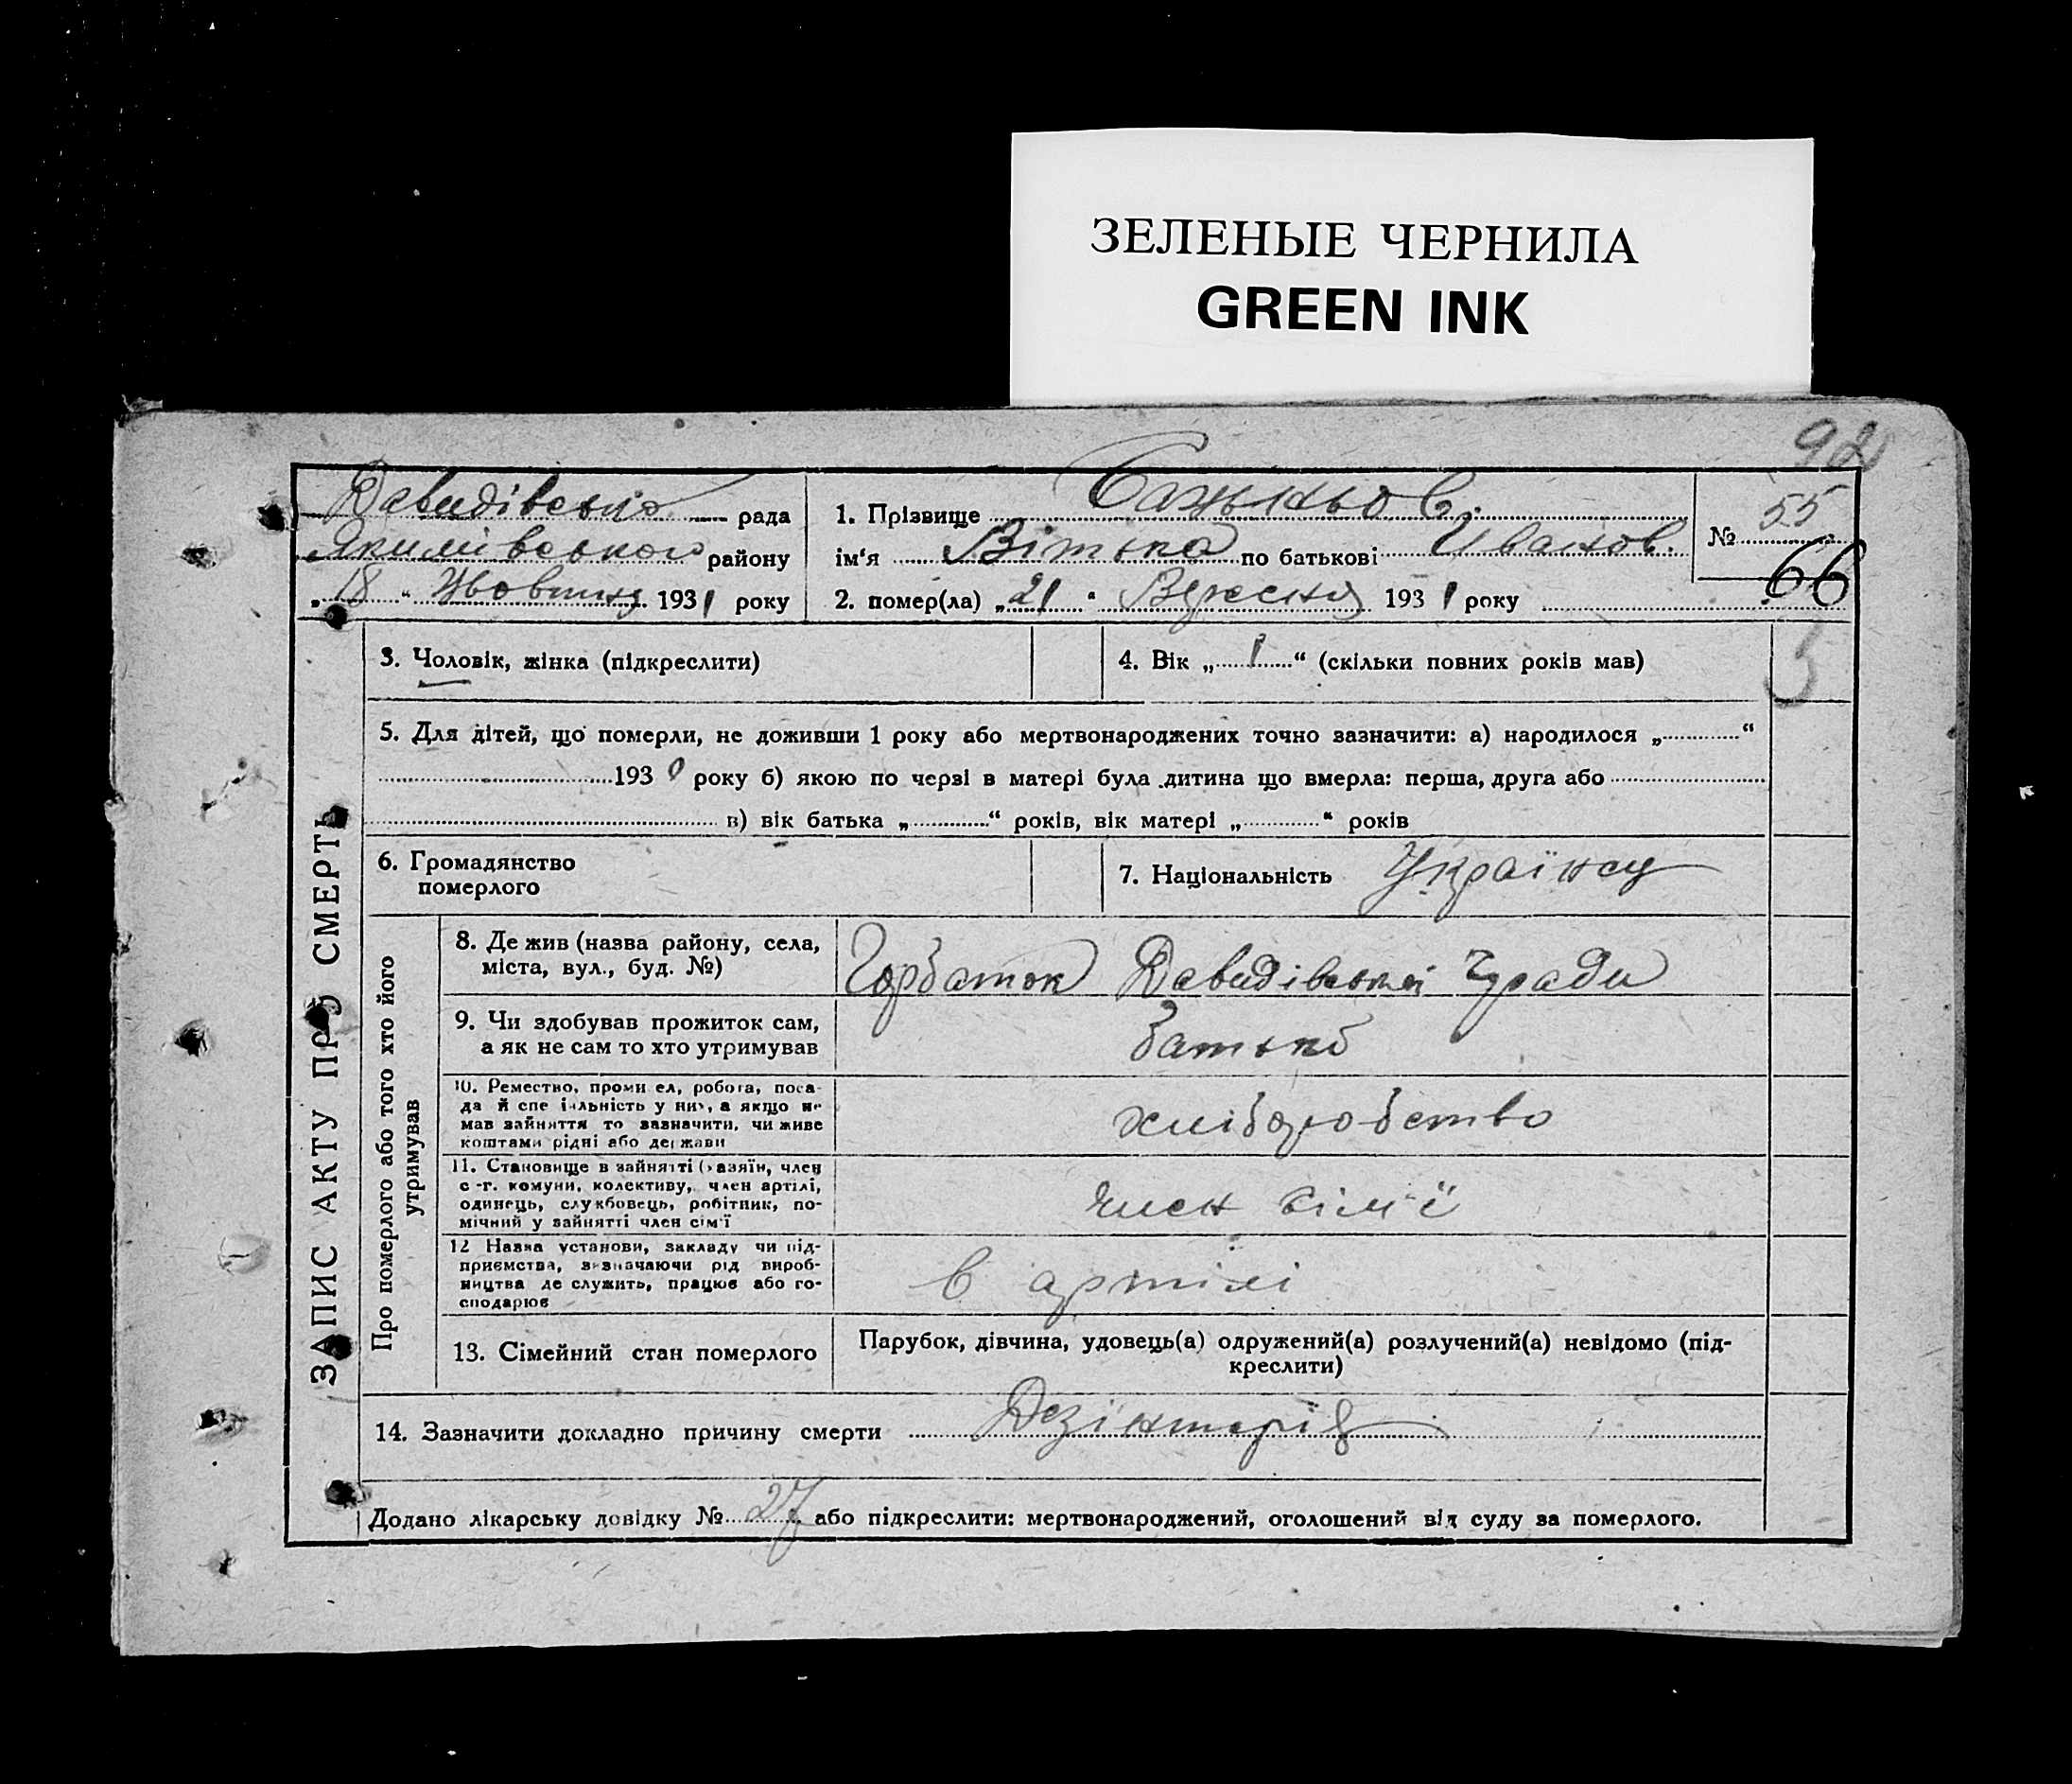 ЗЕЛЕНЫЕ ЧЕРНИЛА
GREEN INK
92
Давидівська рада
Якимівського району
„18“ Жовтня 1931 року
1. Прізвище
ім‘я Вітька по батькові Иванов.
2. помер(ла) „21“ Вересня 1931 року
№ 55
66
ЗАПИС АКТУ ПРО СМЕРТЬ
3. Чоловік, жінка (підкреслити)
4. Вік „1“ (скільки повних років мав)
5. Для дітей, що померли, не доживши 1 року або мертвонароджених точно зазначити: а) народилося „ “
1930 року б) якою по черві в матері була дитина що вмерла: перша, друга або
в) вік батька „ “ років, вік матері „ “ років
6. Громадянство
померлого
7. Національність Українец
Про померлого або того хто його
утримував
8. Де жив (назва району, села,
міста, вул., буд. №)
Горбаток Давидівської с/ради
9. Чи здобував прожиток сам,
а як не сам то хто утримував
батько
10. Ремество, промисел, робота, поса-
да й спеціяльність у них, а якщо не
мав зайняття то зазначити, чи живе
коштами рідні або держави
хліборобство
11. Становище в зайнятті (хазяїн, член
с.-г. комуни, колективу, член артілі,
одинець, службовець, робітник, по-
мічний у зайнятті член сім‘ї
член сім‘ї
12 Назва установи, закладу чи під-
приємства, зазначаючи рід вироб-
ництва де служить, працює або го-
сподарює
в артілі
13. Сімейний стан померлого
Парубок, дівчина, удовець(а) одружений(а) розлучений(а) невідомо (під-
креслити)
14. Зазначити докладно причину смерти Дезінтерія
Додано лікарську довідку № 27 або підкреслити: мертвонароджений, оголошений від суду за померлого.